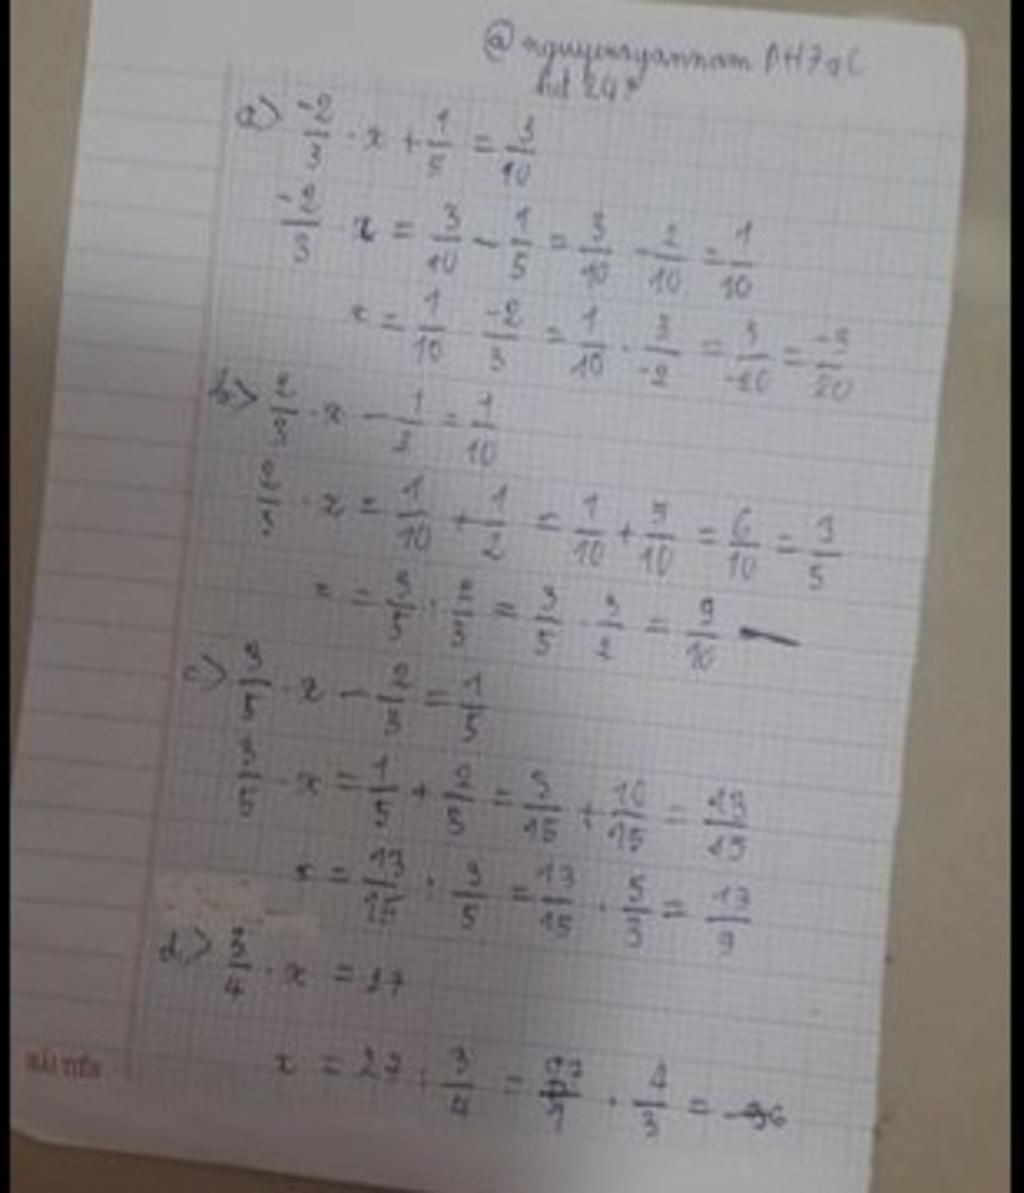 a) -2/3 · x + 1/5 = 3/10
-2/3 x = 3/10 - 1/5 = 3/10 - 2/10 = 1/10
x = 1/10 : -2/3 = 1/10 · 3/-2 = 3/-20 = -3/20
b) 2/3 · x - 1/2 = 1/10
2/3 · x = 1/10 + 1/2 = 1/10 + 5/10 = 6/10 = 3/5
x = 3/5 : 2/3 = 3/5 · 3/2 = 9/10
c) 3/5 · x - 2/3 = 1/5
3/5 · x = 1/5 + 2/3 = 3/15 + 10/15 = 13/15
x = 13/15 : 3/5 = 13/15 · 5/3 = 13/9
d) 3/4 · x = 27
x = 27 : 3/4 = 27/1 · 4/3 = 36
HẢI TIẾN